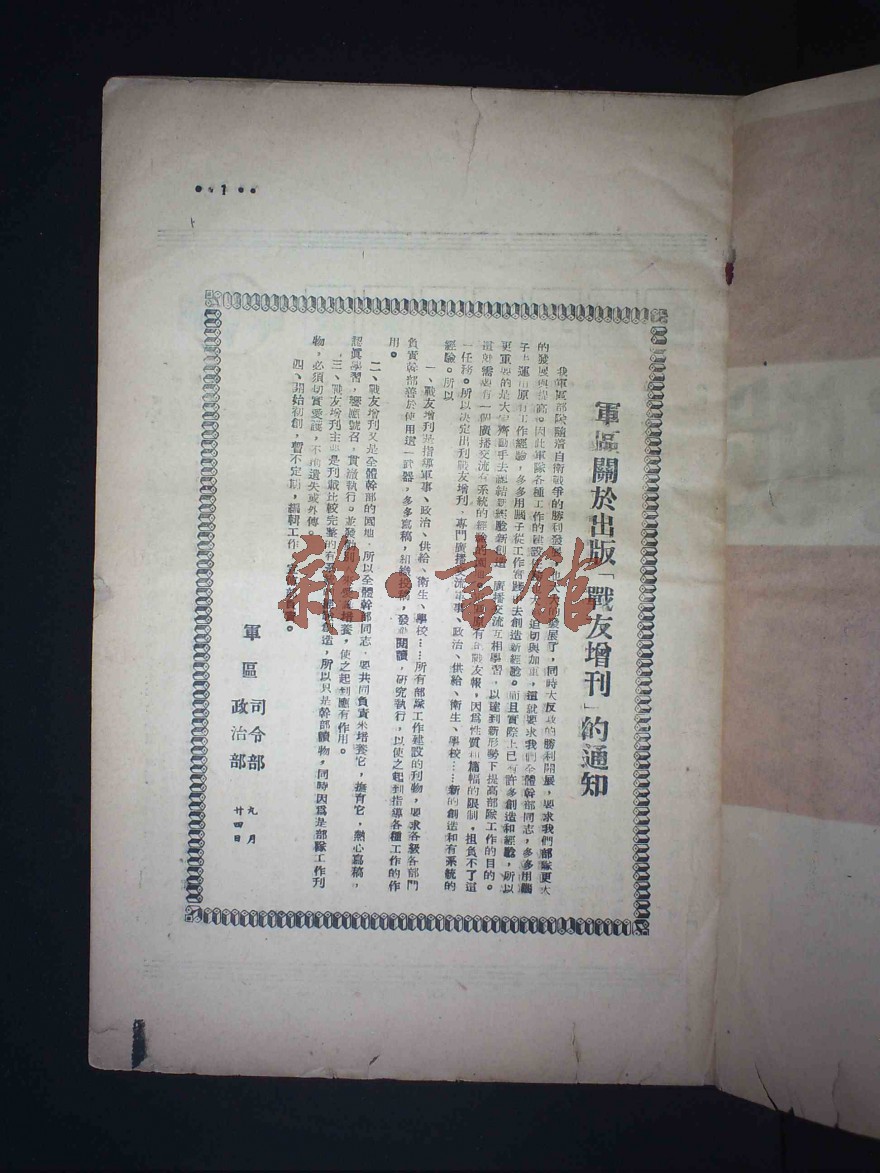 ••1••
軍區關於出版「戰友增刊」的通知
我軍區部隊隨着自衛戰爭的勝利發展，發展了，同時大反攻的勝利開展，要求我們部隊更大
的發展與提高。因此軍隊各種工作的建設迫切與加重，這就要求我們全體幹部同志，多多用腦
子去運用原有工作經驗，多多用腦子從工作實踐中去創造新經驗。而且實際上已有許多創造和經驗，所以
更重要的是大家齊動手去總結新經驗新創造，廣播交流互相學習，以達到新形勢下提高部隊工作的目的。
這就需要有一個廣播交流有系統的經驗的園地，原有的戰友報，因爲性質和篇幅的限制，担負不了這
一任務。所以決定出刊戰友增刊，專門廣播交流軍事、政治、供給、衛生、學校……新的創造和有系統的
經驗。所以
一、戰友增刊是指導軍事、政治、供給、衛生、學校……所有部隊工作建設的刊物，要求各級各部門
負責幹部善於使用這一武器，多多寫稿，組織投稿，發動閱讀，研究執行，以使之起到指導各種工作的作
用。
二、戰友增刊又是全體幹部的園地，所以全體幹部同志，要共同負責來培養它，撫育它，熱心寫稿，
認眞學習，響應號召，貫澈執行。並發培養，使之起到應有作用。
三、戰友增刊主要是刊載比較完整的有系統的創造，所以只是幹部讀物，同時因爲是部隊工作刊
物，必須切實愛護，不得遺失或外傳。
四、開始初創，暫不定期，編輯工作
軍區 司令部 政治部 九月廿四日
雜·書館